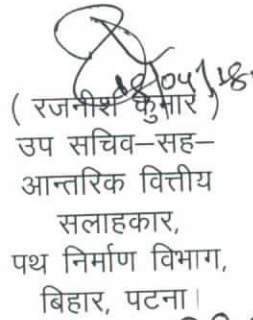 18/04/18
( रजनीश कुमार )
उप सचिव–सह–
आन्तरिक वित्तीय
सलाहकार,
पथ निर्माण विभाग,
बिहार, पटना।